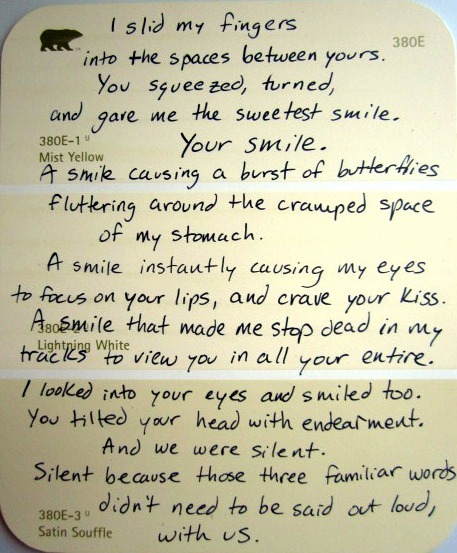 I slid my fingers
380E
into the spaces between yours.
You squeezed, turned,
and gave me the sweetest smile.
380E-1 U
Mist Yellow
Your smile.
A smile causing a burst of butterflies
fluttering around the cramped space
of my stomach.
A smile instantly causing my eyes
to focus on your lips, and crave your kiss.
A smile that made me stop dead in my
380E-2 U
Lightning White
tracks to view you in all your entire.
I looked into your eyes and smiled too.
You tilted your head with endearment.
And we were silent.
Silent because those three familiar words
didn't need to be said out loud,
380E-3 U
Satin Souffle
with us.